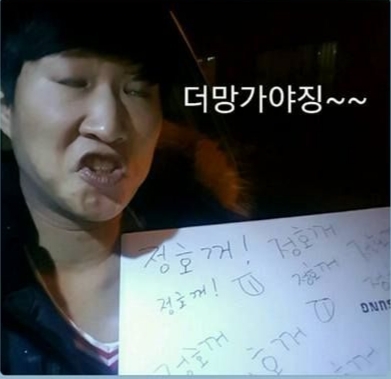 더망가야징~~
정호꺼! 정호꺼
정호꺼! 정호꺼
정호꺼
호꺼